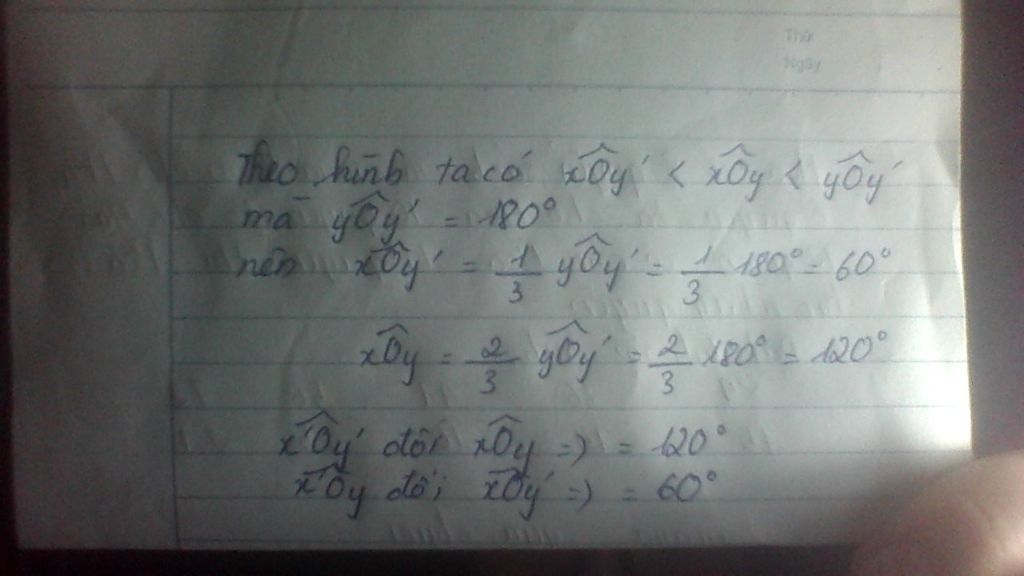 Thứ
Ngày
Theo hình ta có xÔy' < xÔy < yÔy'
mà yÔy' = 180°
nên xÔy' = 1/3 yÔy' = 1/3 180° = 60°
xÔy = 2/3 yÔy' = 2/3 180° = 120°
x'Ôy' đối xÔy => = 120°
x'Ôy đối xÔy' => = 60°